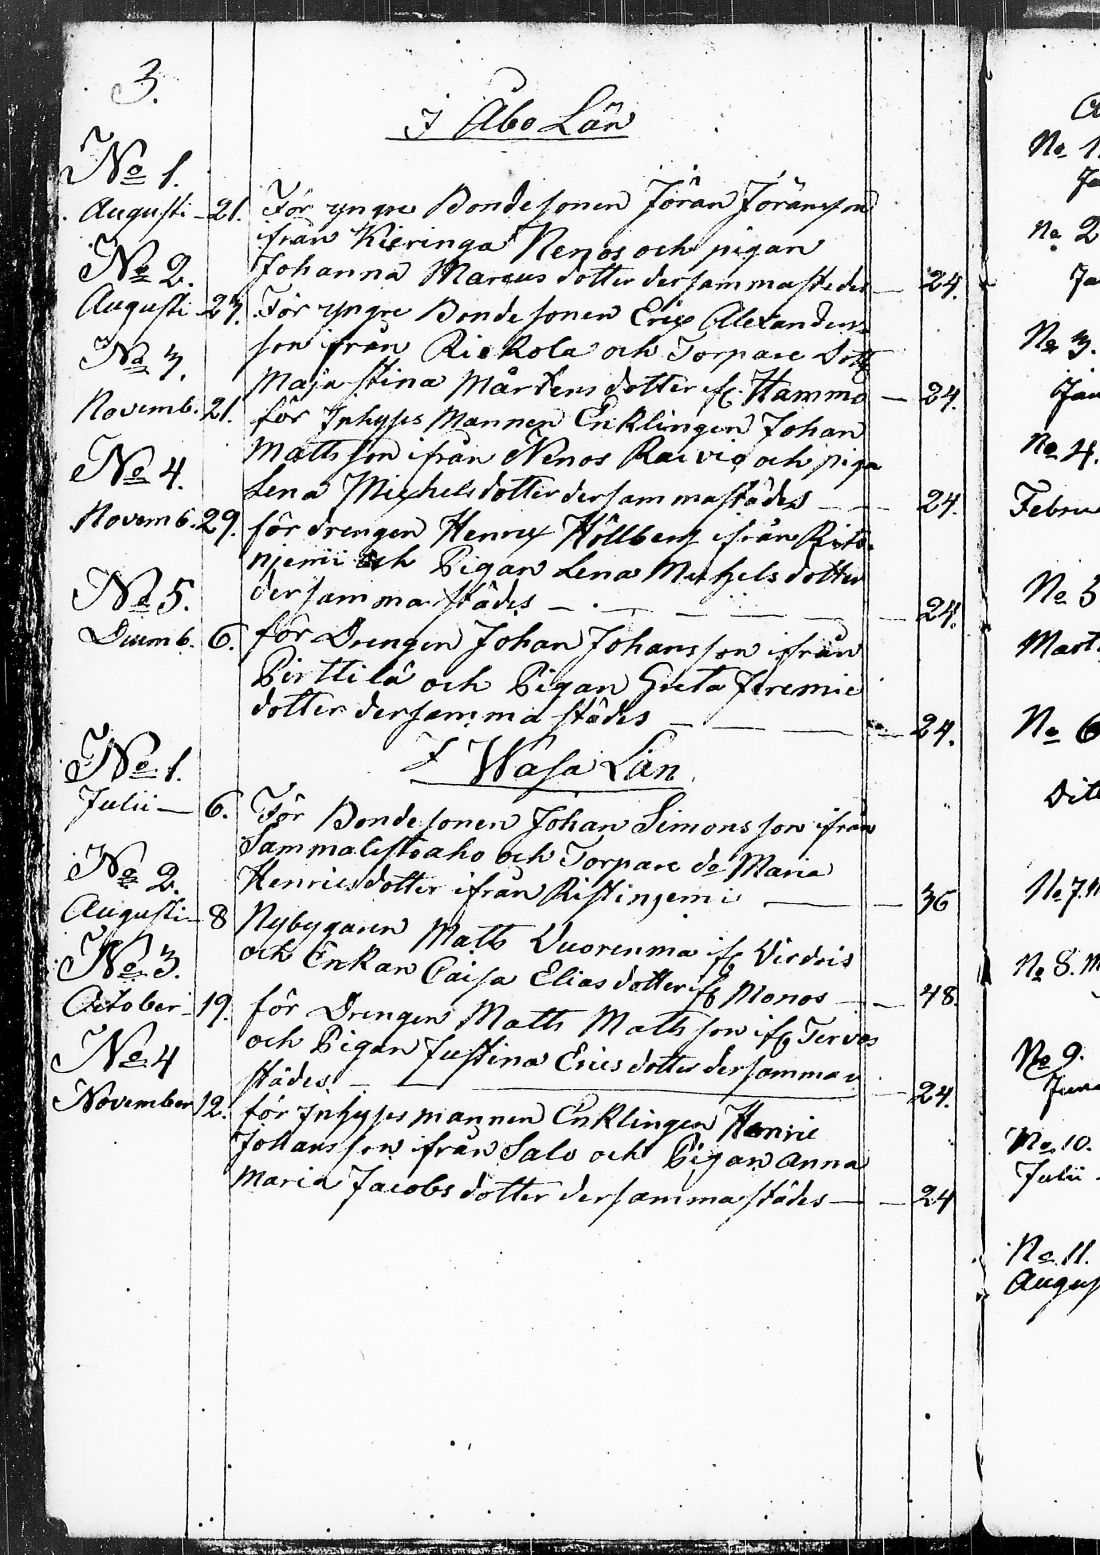 3.
I Åbo Län
No 1.
Augusti 21. För yngre Bondesonen Jöran Jöransson
ifrån Kieringa Nenos och pigan
Johanna Marcus dotter dersammastedes — 24.
No 2.
Augusti 27. För yngre Bondesonen Eric Alexanders
son ifrån Riekola och Torpare Dott
Maja Stina Mårtens dotter if. Hammo — 24.
No 3.
Novemb. 21. för Inhyses Mannen Enklingen Johan
Matts son ifrån Nenos Raivio och piga
Lena Michelsdotter dersammastädes — 24.
No 4.
Novemb. 29. för drengen Henric Höllberg ifrån Rito-
njemi och Pigan Lena Michels dotter
dersammastädes — 24.
No 5.
Decemb. 6. för Drengen Johan Johansson ifrån
Pirttilä och Pigan Greta Jeremie
dotter dersamma städes — 24.
I Wasa Län
No 1.
Julii — 6. För Bondesonen Johan Simonsson ifrån
Sammalistoaho och Torpare do Maria
Henricsdotter ifrån Ristinjemi — 36
No 2.
Augusti 8 Nybygaren Matts Vuorenma if Virdois
och Enkan Caisa Elias dotter if Monos — 48.
No 3.
October 19. för Drengen Matts Mattsson if Tervos
och Pigan Justina Erics dotter dersamma
städes — 24.
No 4
November 12. för Inhyses mannen Enklingen Henric
Johansson ifrån Salo och Pigan Anna
Maria Jacobs dotter dersammastädes — 24
No 1.
No 2
No 3.
No 4.
Febru
No 5
Mart
No 6
Dito
No 7.
No 8.
No 9.
No 10.
Julii
No 11.
Augus